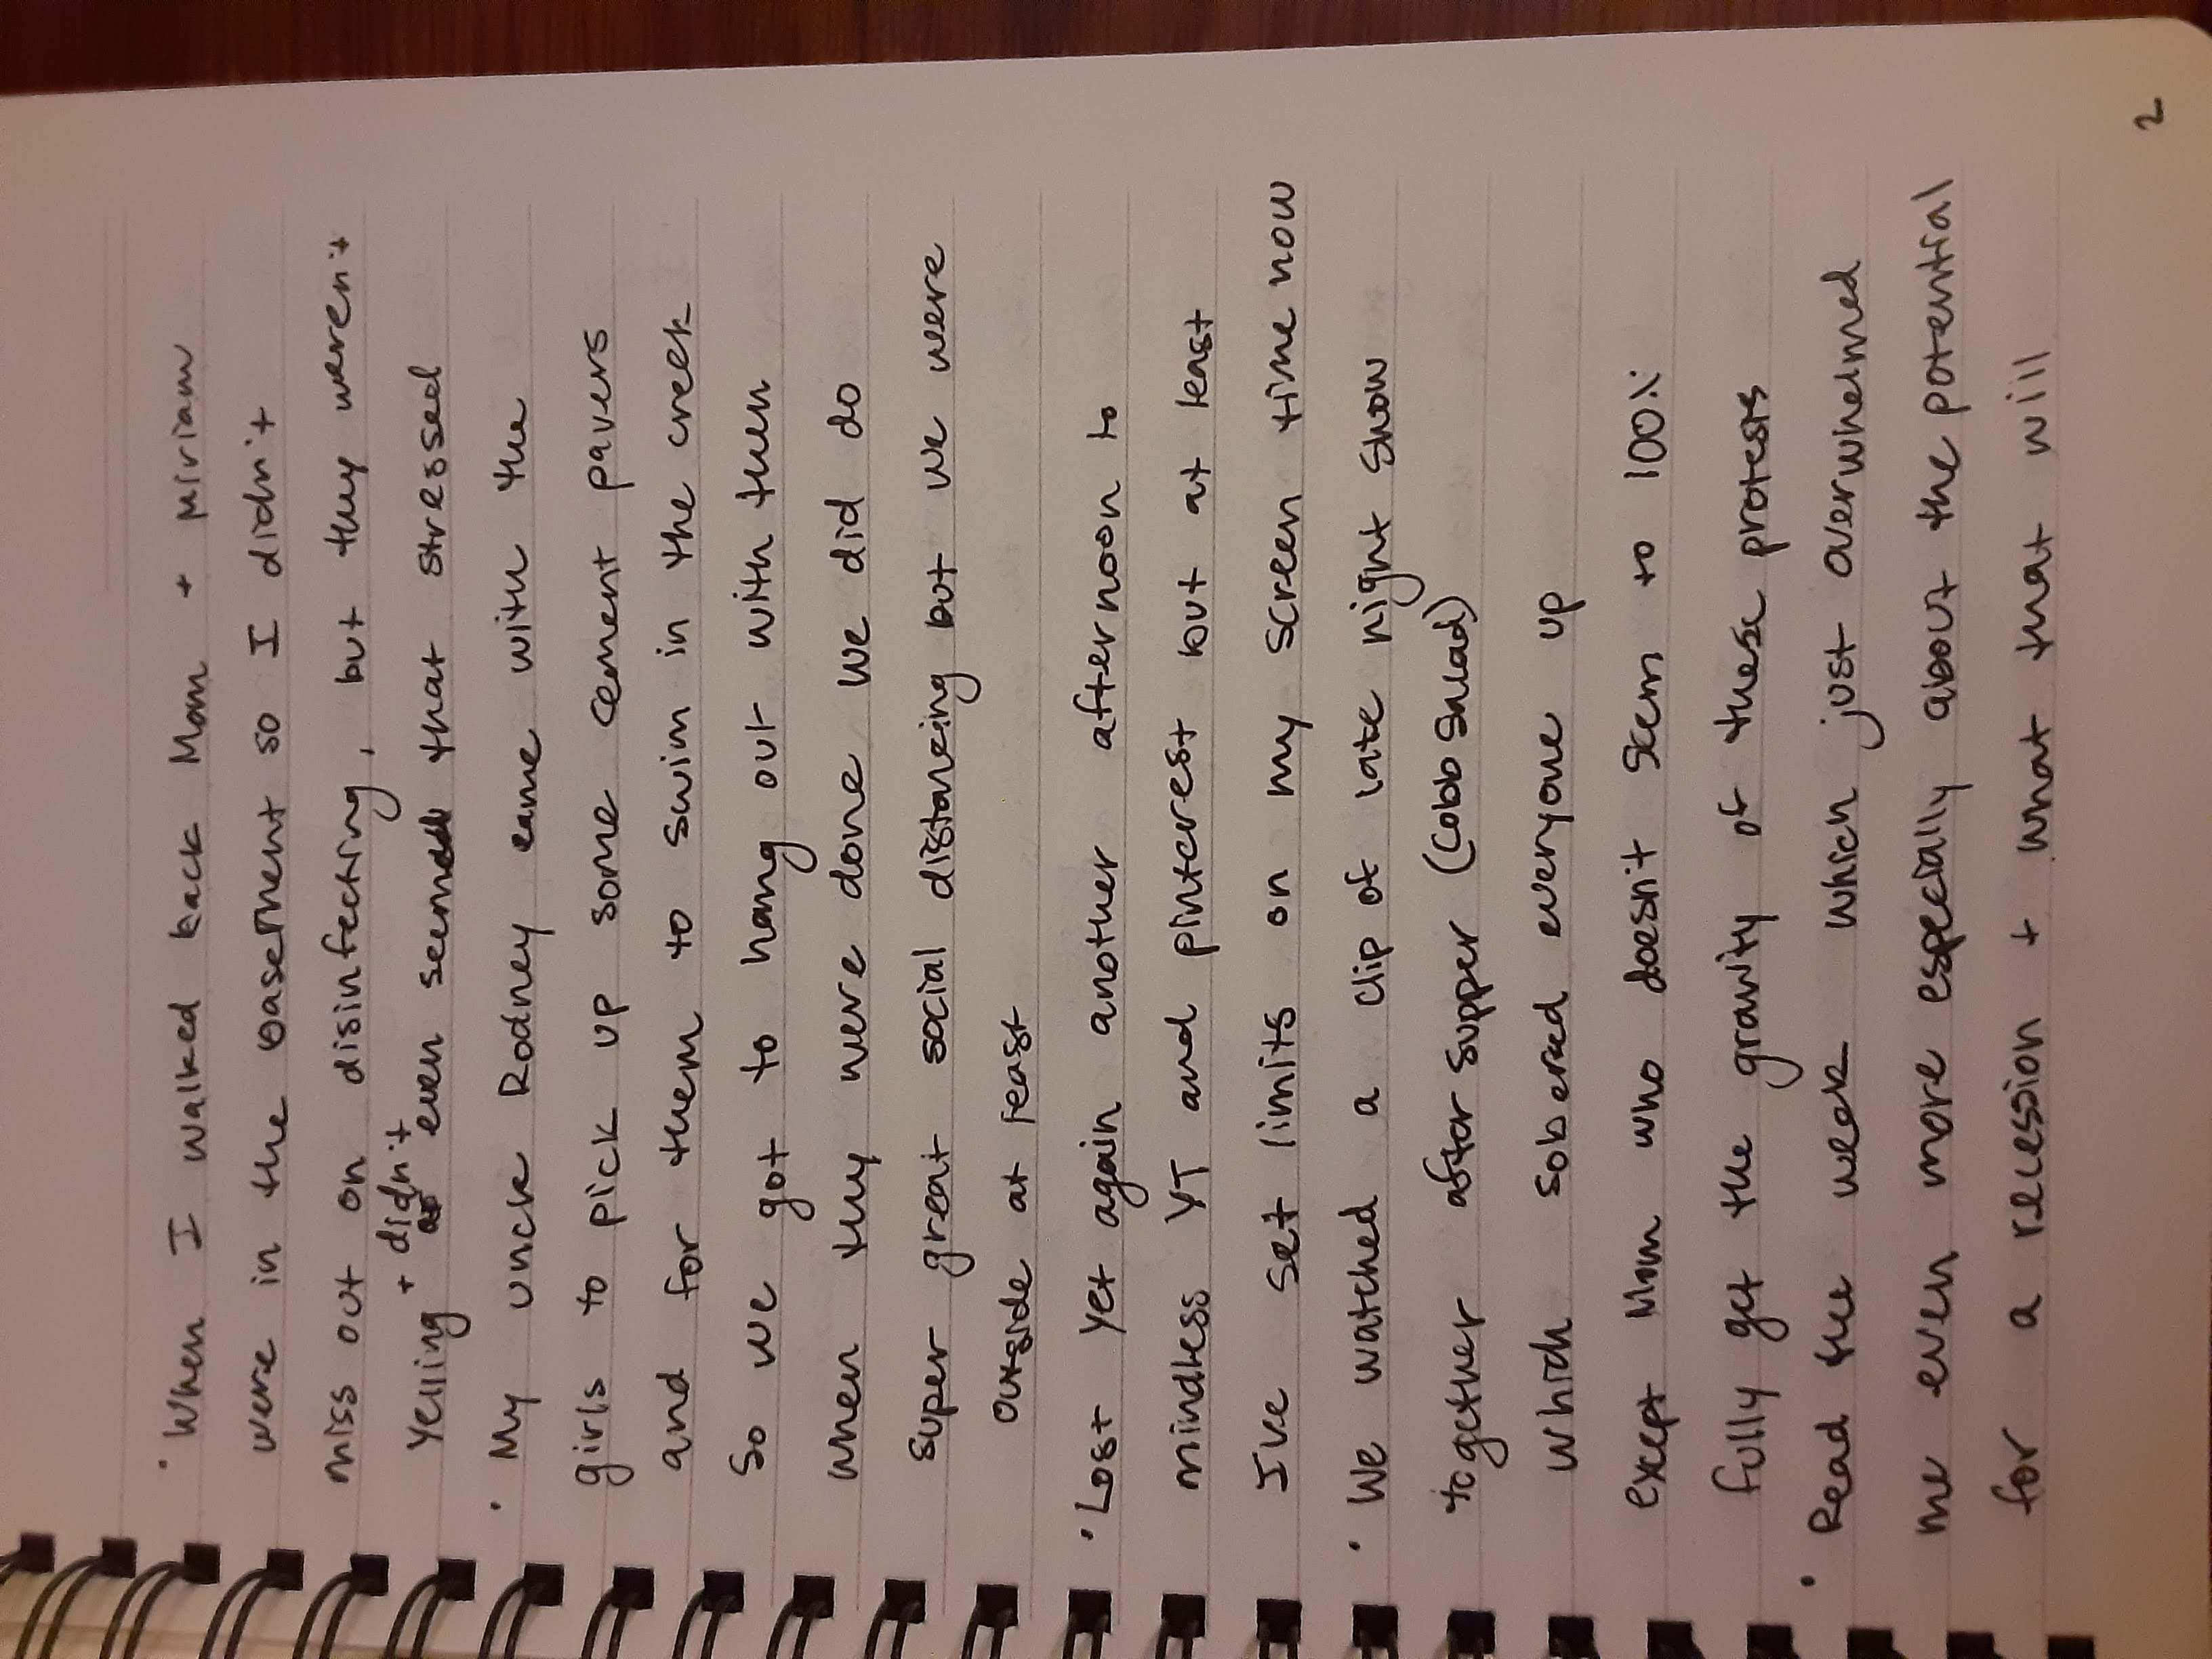 · When I walked back Mom + Miriam
were in the basement so I didn't
miss out on disinfecting, but they weren't
yelling + didn't even seemed that stressed
· My uncle Rodney came with the
girls to pick up some cement pavers
and for them to swim in the creek
so we got to hang out with them
when they were done we did do
super great social distancing but we were
outside at least
· Lost yet again another afternoon to
mindless YT and pinterest but at least
I've set limits on my screen time now
· We watched a clip of late night show
together after supper (Cobb Salad)
which sobered everyone up
except Mom who doesn't seem to 100%
fully get the gravity of these protests
· Read the week which just overwhelmed
me even more especially about the potential
for a recession + what that will
2